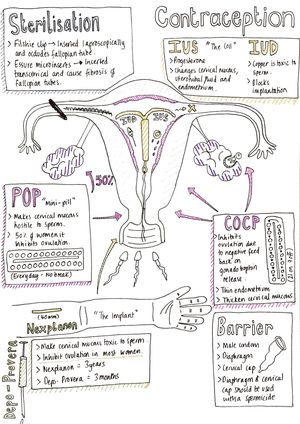 Sterilisation
> Filshie clip → Inserted laproscopically
and occludes fallopian tube.
> Essure microinserts → Inserted
transcervical and cause fibrosis of
fallopian tubes.
Contraception
IUS "The Coil" IUD
> Progesterone
> Changes cervical mucus,
uterotubal fluid and
endometrium.
> Copper is toxic to
sperm.
> Blocks
implantation
IUD
IUS
X
50%
POP "mini-pill"
> Makes cervical mucus
hostile to sperm.
> 50% of women it
inhibits ovulation.
(Everyday - No break)
COCP
> Inhibits
ovulation due
to negative feed
back on
gonadotrophin
release.
> Thin endometrium
> Thicken cervical mucus
(40mm)
"The Implant"
Nexplanon
> Make cervical mucus toxic to sperm
> Inhibit ovulation in most women.
> Nexplanon = 3 years
> Depo-Provera = 3 months
Depo-Provera
Barrier
> Male condom
> Diaphragm
> Cervical cap
> Diaphragm & cervical
cap should be used
with a spermicide